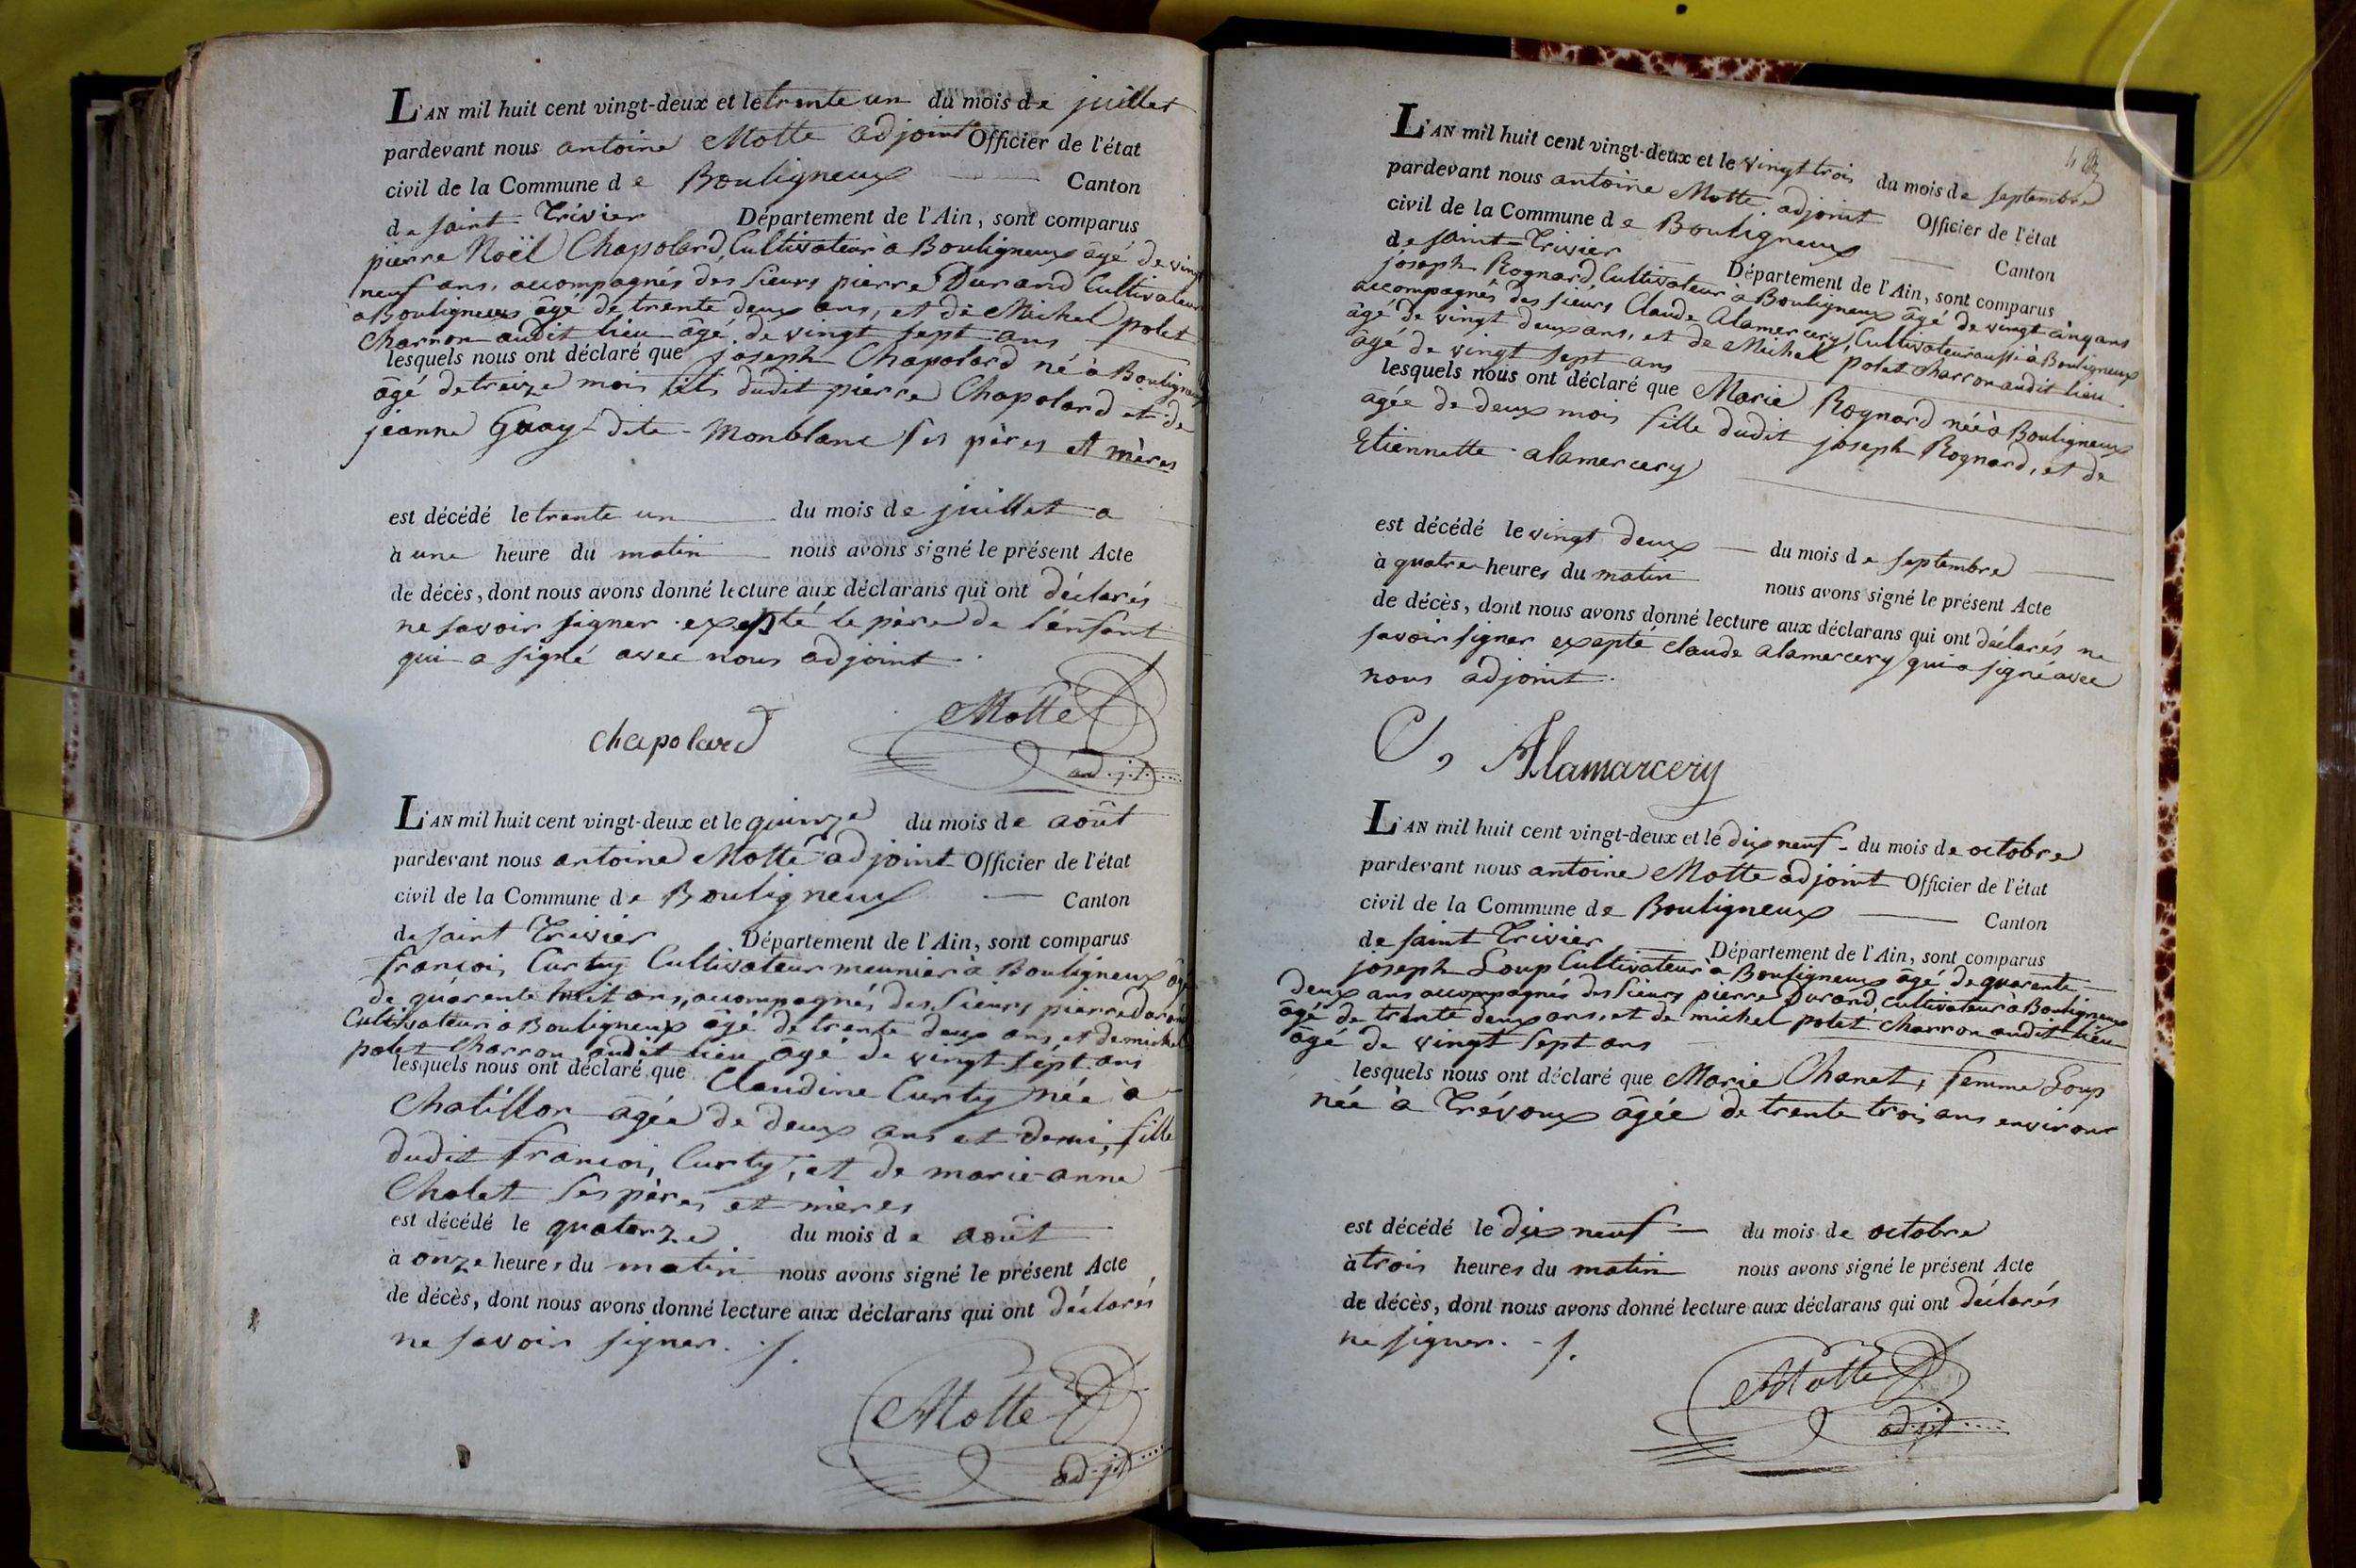 L'AN mil huit cent vingt-deux et le trente un du mois de juillet
pardevant nous antoine Motte adjoint Officier de l'état
civil de la Commune de Bouligneux Canton
de saint Trivier Département de l'Ain, sont comparus
pierre Noël Chapolard, Cultivateur à Bouligneux âgé de vingt
neuf ans, accompagnés des sieurs pierre Durand Cultivateur
à Bouligneux âgé de trente deux ans, et de Michel polet
Charron audit lieu âgé de vingt sept ans
lesquels nous ont déclaré que joseph Chapolard né à Bouligneux
âgé de treize mois fils dudit pierre Chapolard et de
jeanne Guay dite Monblanc ses pères et mères
est décédé le trente un du mois de juillet a
à une heure du matin nous avons signé le présent Acte
de décès, dont nous avons donné lecture aux déclarans qui ont déclarés
ne savoir signer exepté le père de l'enfant
qui a signé avec nous adjoint.
chapolard Motte
ad.jt
L'AN mil huit cent vingt-deux et le quinze du mois de août
pardevant nous antoine Motte adjoint Officier de l'état
civil de la Commune de Bouligneux Canton
de saint Trivier Département de l'Ain, sont comparus
françois Curty Cultivateur meunier à Bouligneux âgé
de quarente huit ans, accompagnés des sieurs pierre Durand
Cultivateur à Bouligneux âgé de trente deux ans, et de michel
polet Charron audit lieu âgé de vingt sept ans
lesquels nous ont déclaré que Claudine Curty née à
Chatillon âgée de deux ans et demi, fille
dudit françois Curty, et de marie-anne
Chalet ses pères et mères
est décédé le quatorze du mois de août
à onze heures du matin nous avons signé le présent Acte
de décès, dont nous avons donné lecture aux déclarans qui ont déclarés
ne savoir signer.
Motte
ad.jt
L'AN mil huit cent vingt-deux et le vingt trois du mois de septembre
pardevant nous antoine Motte adjoint Officier de l'état
civil de la Commune de Bouligneux Canton
de saint-Trivier Département de l'Ain, sont comparus
joseph Rognard, Cultivateur à Bouligneux âgé de vingt cinq ans
accompagnés des sieurs Claude Alamercery, Cultivateur aussi à Bouligneux
âgé de vingt deux ans, et de Michel polet charron audit lieu
âgé de vingt sept ans
lesquels nous ont déclaré que Marie Rognard née à Bouligneux
âgée de deux mois fille dudit joseph Rognard, et de
Etiennette alamercery
est décédé le vingt deux du mois de septembre
à quatre heures du matin nous avons signé le présent Acte
de décès, dont nous avons donné lecture aux déclarans qui ont déclarés ne
savoir signer exepté claude alamercery qui a signé avec
nous adjoint.
C, Alamarcery
L'AN mil huit cent vingt-deux et le dix neuf du mois de octobre
pardevant nous antoine Motte adjoint Officier de l'état
civil de la Commune de Bouligneux Canton
de saint Trivier Département de l'Ain, sont comparus
joseph Loup Cultivateur à Bouligneux âgé de quarente
deux ans accompagnés des sieurs pierre Durand cultivateur à Bouligneux
âgé de trente deux ans, et de michel polet charron audit lieu
âgé de vingt sept ans
lesquels nous ont déclaré que Marie Chanet, femme Loup
née à Trévoux âgée de trente trois ans environ
est décédé le dix neuf du mois de octobre
à trois heures du matin nous avons signé le présent Acte
de décès, dont nous avons donné lecture aux déclarans qui ont déclarés
ne signer.
Motte
ad.jt